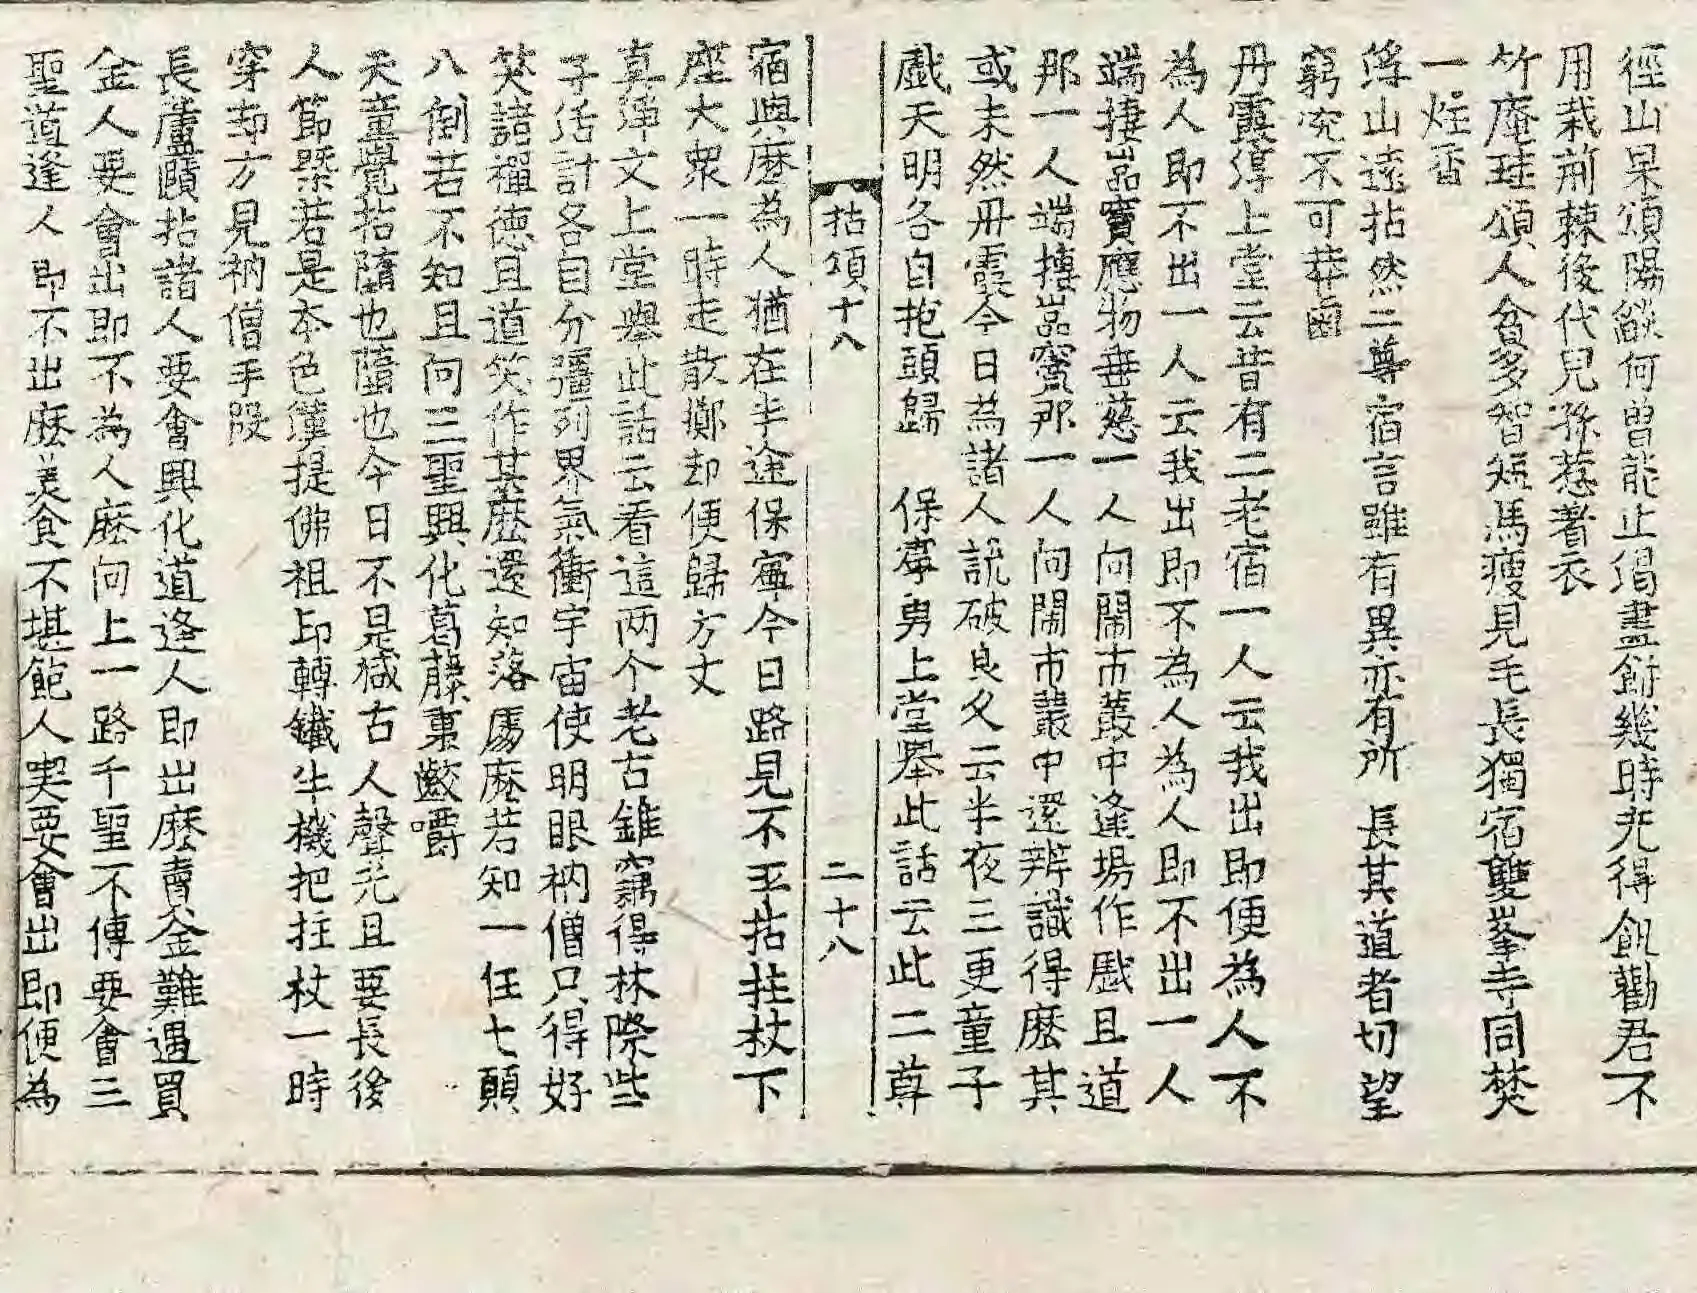 徑山杲頌陽燄何曾能止渴畫餠幾時充得飢勸君不
用栽荊棘後代兒孫惹著衣
竹庵珪頌人貧多智短馬瘦見毛長獨宿雙峯寺同焚
一炷香
浮山遠拈然二尊宿言雖有異亦有所長其道者切望
窮究不可莽鹵
丹霞淳上堂云昔有二老宿一人云我出即便為人不
為人即不出一人云我出即不為人為人即不出一人
端捿寶應物垂慈一人向閙市叢中逢場作戲且道
那一人端摶那一人向閙市叢中還辨識得麽其
或未然丹霞今日為諸人說破良久云半夜三更童子
戲天明各自抱頭歸 保寧勇上堂舉此話云此二尊
拈頌十八 二十八
宿與麽為人猶在半途保寧今日路見不平拈拄杖下
座大衆一時走散擲却便歸方丈
真淨文上堂舉此話云看這两个老古錐竊得林際些
子活計各自分彊列界氣衝宇宙使明眼衲僧只得好
笑諸禪德且道笑作甚麽還知落處麽若知一任七顚
八倒若不知且向三聖興化葛藤裏齩嚼
天童覺拈隨也隨也今日不是減古人聲光且要長後
人節槩若是本色漢提佛祖印轉鐵牛機把拄杖一時
穿却方見衲僧手段
長蘆賾拈諸人要會興化道逢人即出麽賣金難遇買
金人要會出即不為人麽向上一路千聖不傳要會三
聖道逢人即不出麽美食不堪飽人喫要會出即便為